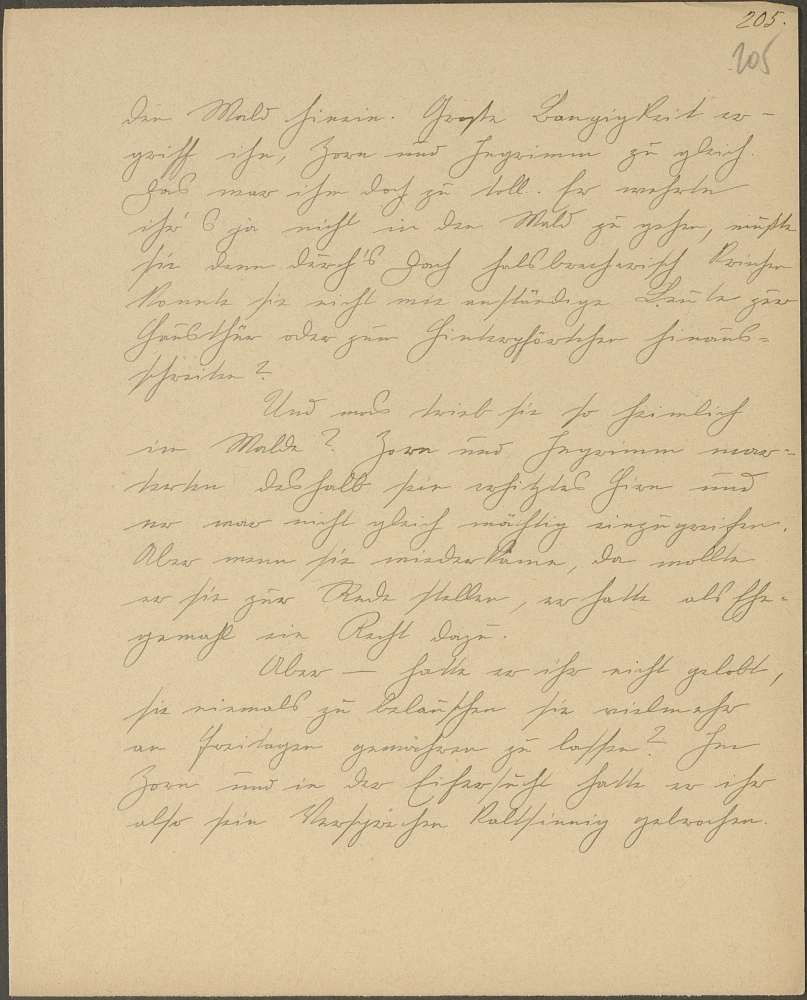 205.
205
den Wald hinein. Große Bangigkeit er-
griff ihn, Zorn und Ingrimm zu gleich.
Das war ihm doch zu toll. Er wehrte
ihr's ja nicht in den Wald zu gehen, mußte
sie denn durch's Dach halsbrecherisch kriechen
konnte sie nicht wie anständige Leute zur
Hausthür oder zum Hinterpförtchen hinaus-
schreiten?
Und was trieb sie so heimlich
im Walde? Zorn und Ingrimm mar-
terten deshalb sein erhitztes Hirn und
er war nicht gleich mächtig einzugreifen.
Aber wenn sie wiederkäme, da wollte
er sie zur Rede stellen, er hatte als Ehe-
gemahl ein Recht dazu.
Aber — hatte er ihr nicht gelobt,
sie niemals zu belauschen sie vielmehr
an Freitagen gewähren zu lassen? Im
Zorn und in der Eifersucht hatte er ihr
also sein Versprechen kaltsinnig gebrochen.